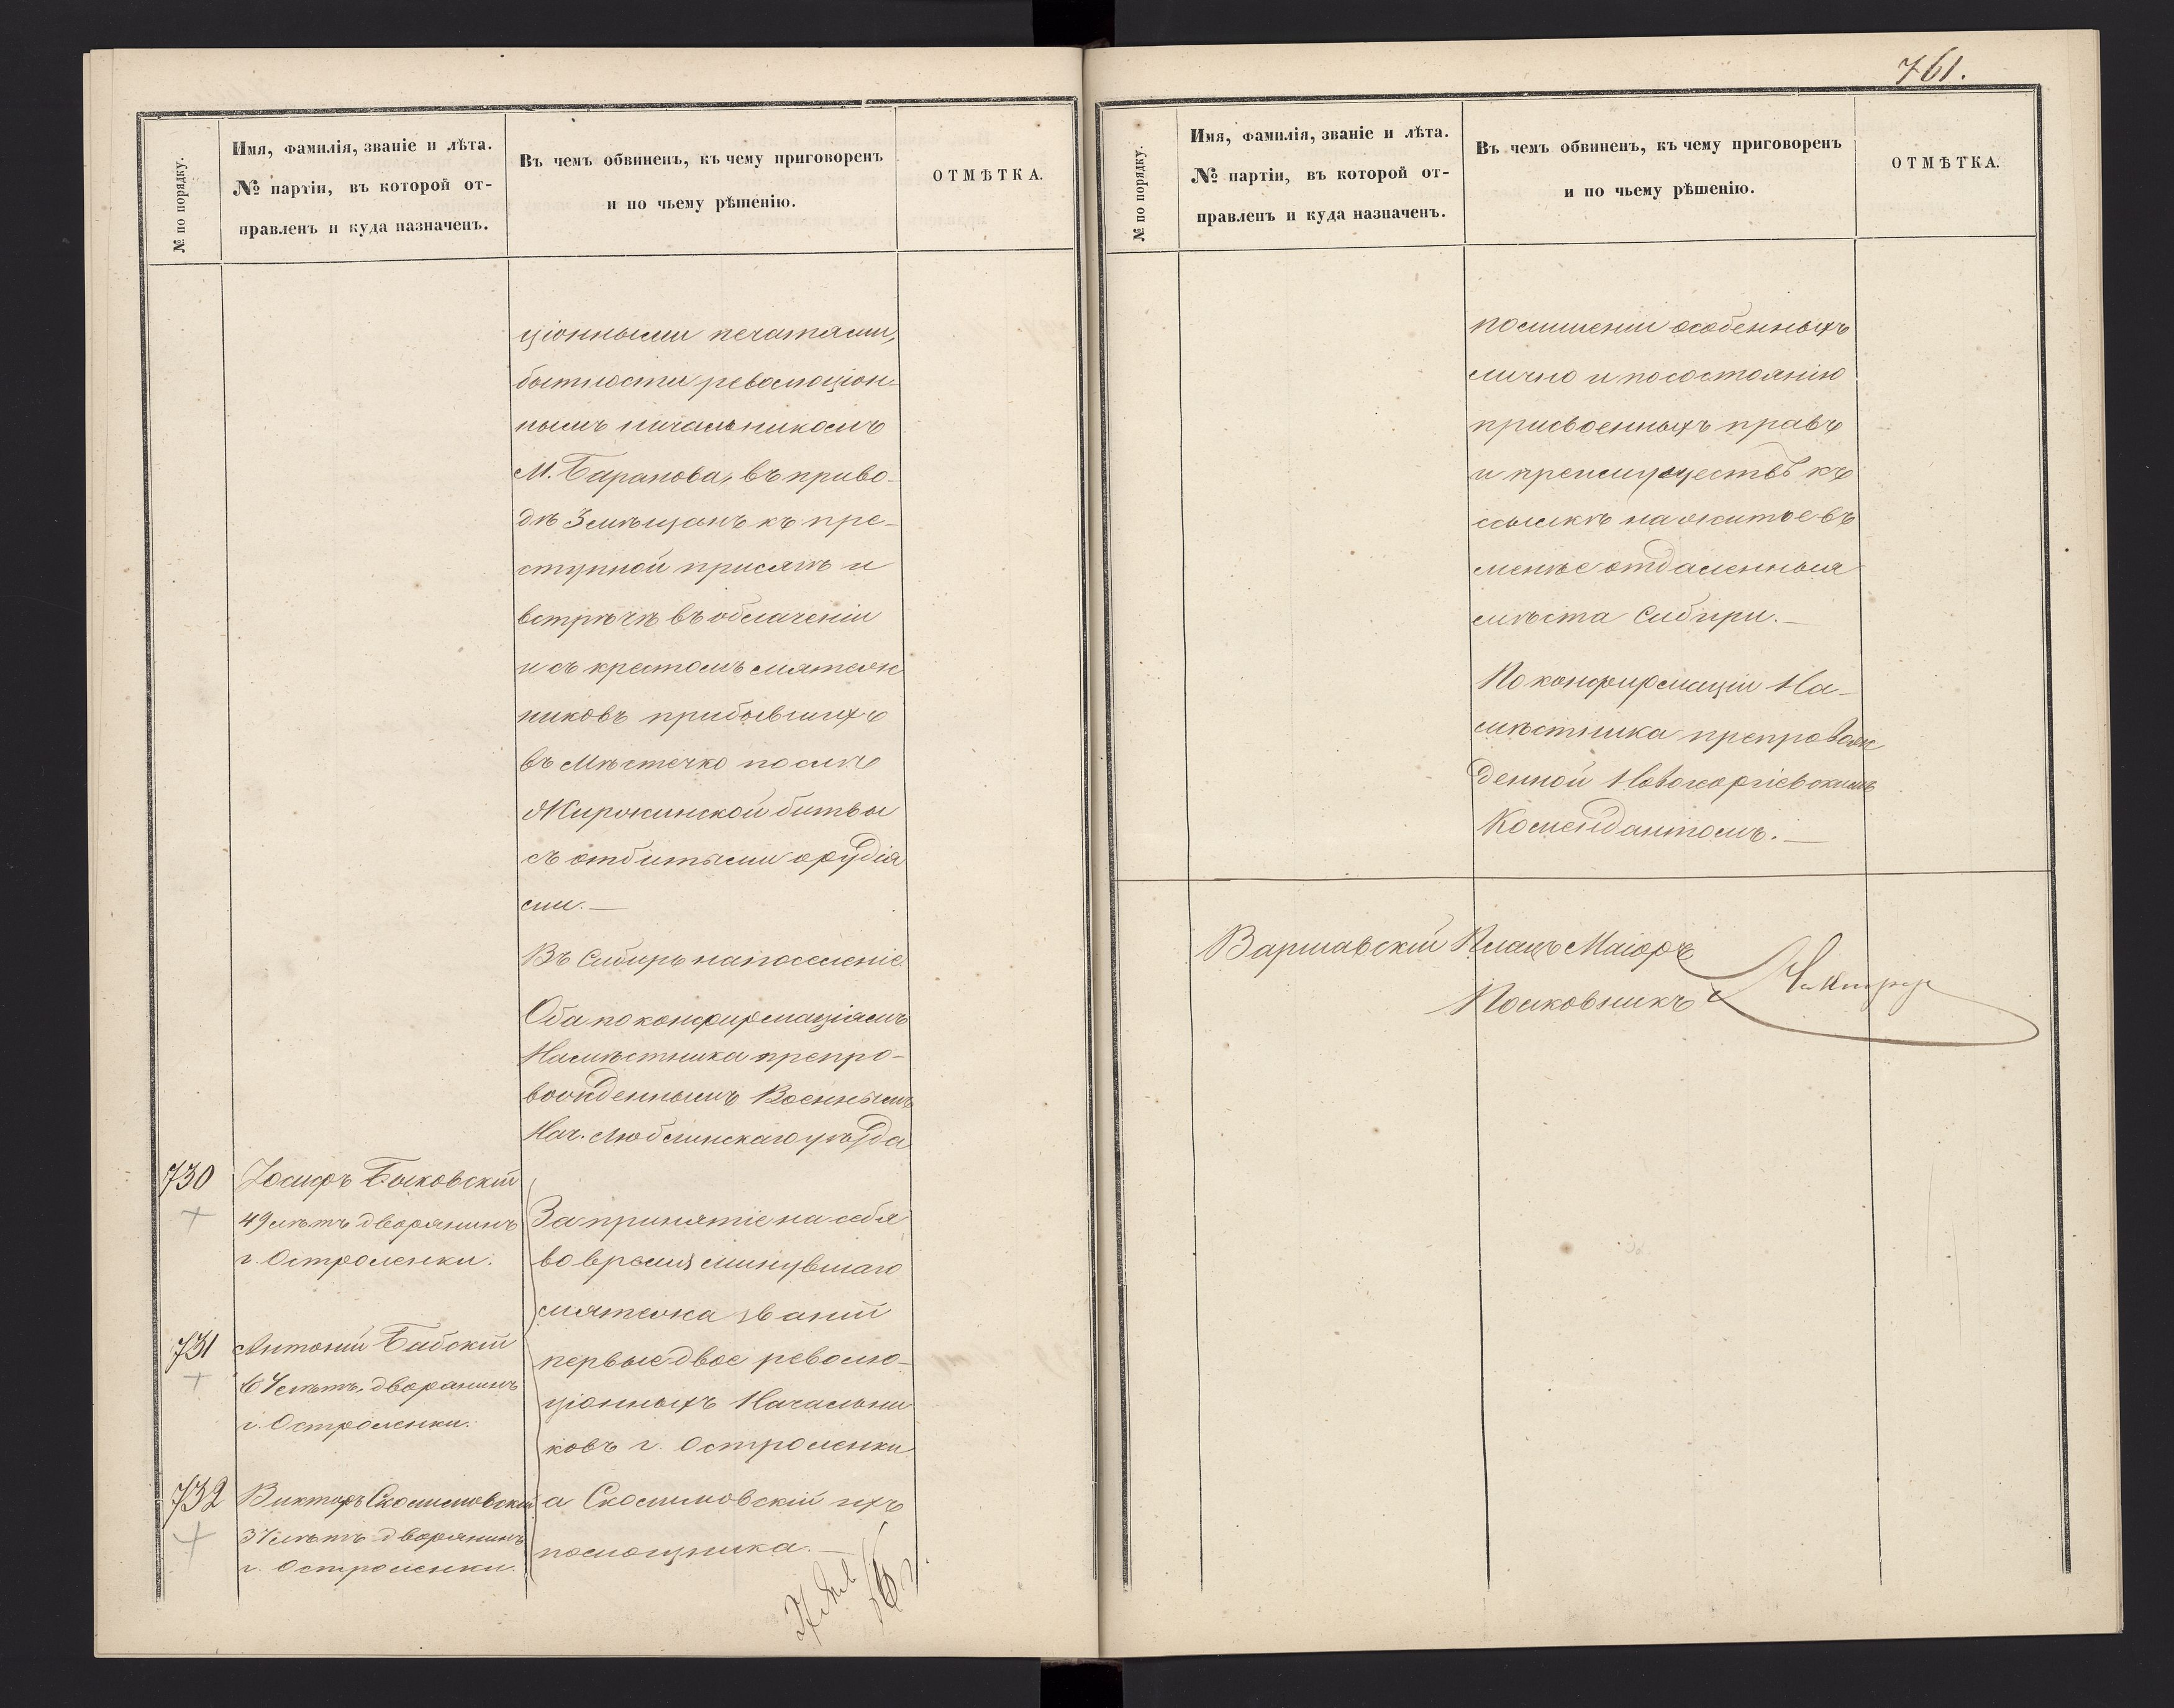 761.
№ по порядку.
Имя, фамилія, званіе и лѣта.
№ партіи, въ которой от-
правленъ и куда назначенъ.
Въ чемъ обвиненъ, къ чему приговоренъ
и по чьему рѣшенію.
ОТМѢТКА.
ціонными печатями,
бытности революціон-
нымъ начальникомъ
М. Баранова, въ приво-
дѣ 3 мѣщанъ къ пре-
ступной присягѣ и
встрѣчѣ въ облаченіи
и съ крестомъ мятеж
никовъ прибывшихъ
въ Мѣстечко послѣ
Жиржинской битвы
съ отбитыми орудія
ми.—
Въ Сибирь на поселеніе
Оба по конфирмаціямъ
Намѣстника препро-
вожденнымъ Военнымъ
Нач. Люблинскаго уѣзда
730
Іосифъ Быковскій
49 лѣтъ дворянинъ
г. Остроленки.
731
Антоній Бабскій
67 лѣтъ, дворянинъ
г. Остроленки.
732
Викторъ Скосиловскій
37 лѣтъ дворянинъ
г. Остроленки.
За принятіе на себя
во время минувшаго
мятежа званій
первые двое револю-
ціонныхъ Начальни
ковъ г. Остроленки
а Скосиловскій ихъ
помощника.—
№ по порядку.
Имя, фамилія, званіе и лѣта.
№ партіи, въ которой от-
правленъ и куда назначенъ.
Въ чемъ обвиненъ, къ чему приговоренъ
и по чьему рѣшенію.
ОТМѢТКА.
по лишеніи особенныхъ
лично и по состоянію
присвоенныхъ правъ
и преимуществъ къ
ссылкѣ на житье въ
менѣе отдаленныя
мѣста Сибири.—
По конфирмаціи На-
мѣстника препровож
денной Новогеоргіевскимъ
Комендантомъ.—
Варшавскій Плацъ Маіоръ
Полковникъ